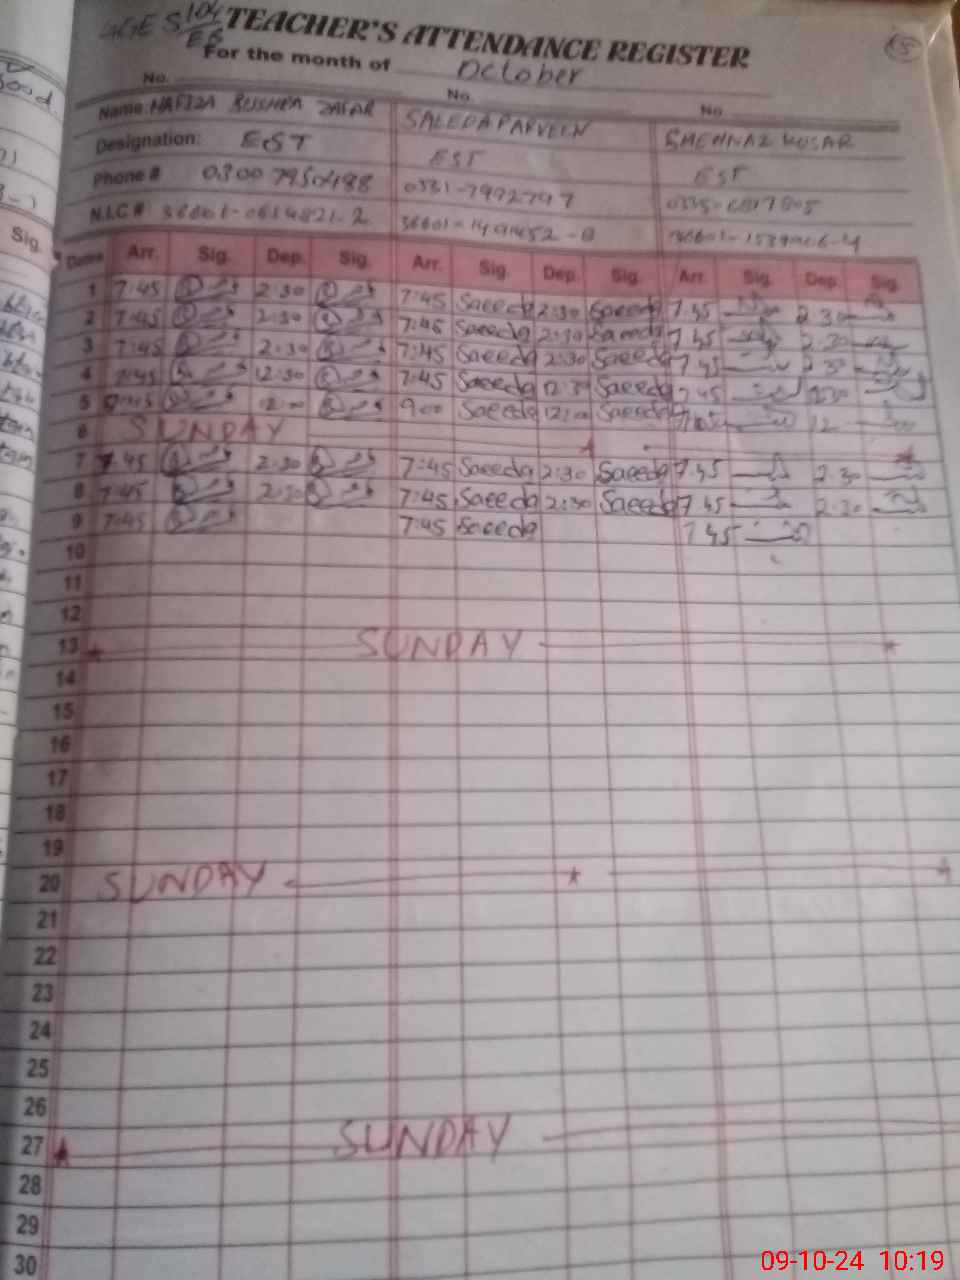 GGES 104/EB TEACHER'S ATTENDANCE REGISTER 15
For the month of October
No. No. No.
Name: HAFIZA BUSHRA ZAFAR SAEEDA PARVEEN SHEHNAZ KUSAR
Designation: EST EST EST
Phone # 0300 7950488 0331-7992797
N.I.C #
Dates Arr. Sig. Dep. Sig. Arr. Sig. Dep. Sig. Arr. Sig. Dep. Sig.
1 7:45 2:30 7:45 Saeeda 2:30 Saeeda 7.45 2.30
2 7:45 2:30 7:45 Saeeda 2:30 Saeeda 7.45 2.30
3 7:45 2:30 7:45 Saeeda 2:30 Saeeda 7.45 2.30
4 7:45 12:30 7:45 Saeeda 12:30 Saeeda 7.45
5 12:00 9:00 Saeeda 12:00 Saeeda 12
6 SUNDAY
7 7:45 2:30 7:45 Saeeda 2:30 Saeeda 7.45 2.30
8 7:45 2:30 7:45 Saeeda 2:30 Saeeda 7.45 2.30
9 7:45 7:45 Saeeda 7.45
10
11
12
13 SUNDAY
14
15
16
17
18
19
20 SUNDAY
21
22
23
24
25
26
27 SUNDAY
28
29
30
Sig.
09-10-24 10:19